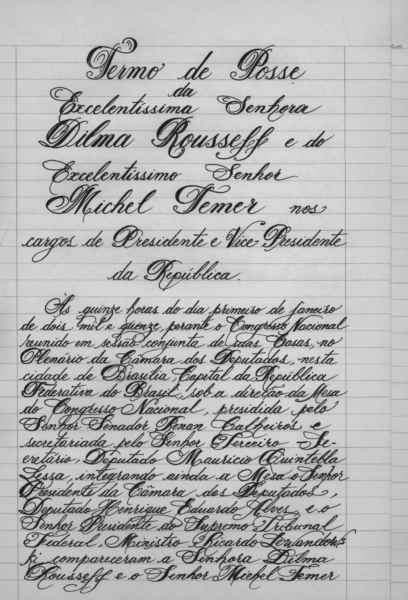 Termo de Posse
da
Excelentíssima Senhora
Dilma Rousseff e do
Excelentíssimo Senhor
Michel Temer nos
cargos de Presidente e Vice-Presidente
da República.
Às quinze horas do dia primeiro de janeiro
de dois mil e quinze, perante o Congresso Nacional
reunido em sessão conjunta de suas Casas, no
Plenário da Câmara dos Deputados, nesta
cidade de Brasília, Capital da República
Federativa do Brasil, sob a direção da Mesa
do Congresso Nacional, presidida pelo
Senhor Senador Renan Calheiros e
secretariada pelo Senhor Terceiro-Se-
cretário, Deputado Maurício Quintella
Lessa, integrando ainda a Mesa o Senhor
Presidente da Câmara dos Deputados,
Deputado Henrique Eduardo Alves, e o
Senhor Presidente do Supremo Tribunal
Federal, Ministro Ricardo Lewandows
ki compareceram a Senhora Dilma
Rousseff e o Senhor Michel Temer